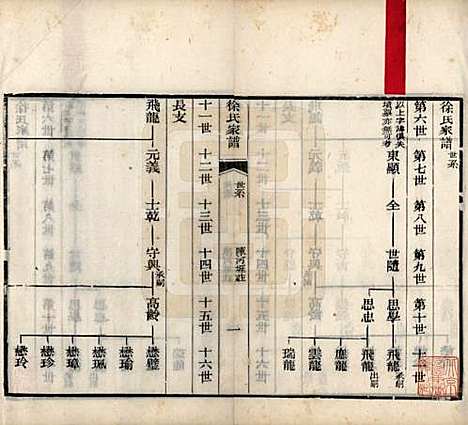 徐氏家譜 世系
第六世 第七世 第八世 第九世 第十世 十一世
以上字諱俱失
墳墓亦無可考
東顯 全 世隨 思學 飛龍 承嗣
思忠 飛龍 出嗣
應龍
雲龍
瑞龍
徐氏家譜 世系 陳河城莊 一
十一世 十二世 十三世 十四世 十五世 十六世
長支
飛龍 元義 士乾 守興 承嗣 高齡 懋璧
懋瑜
懋珮
懋璋
懋珍
懋玲